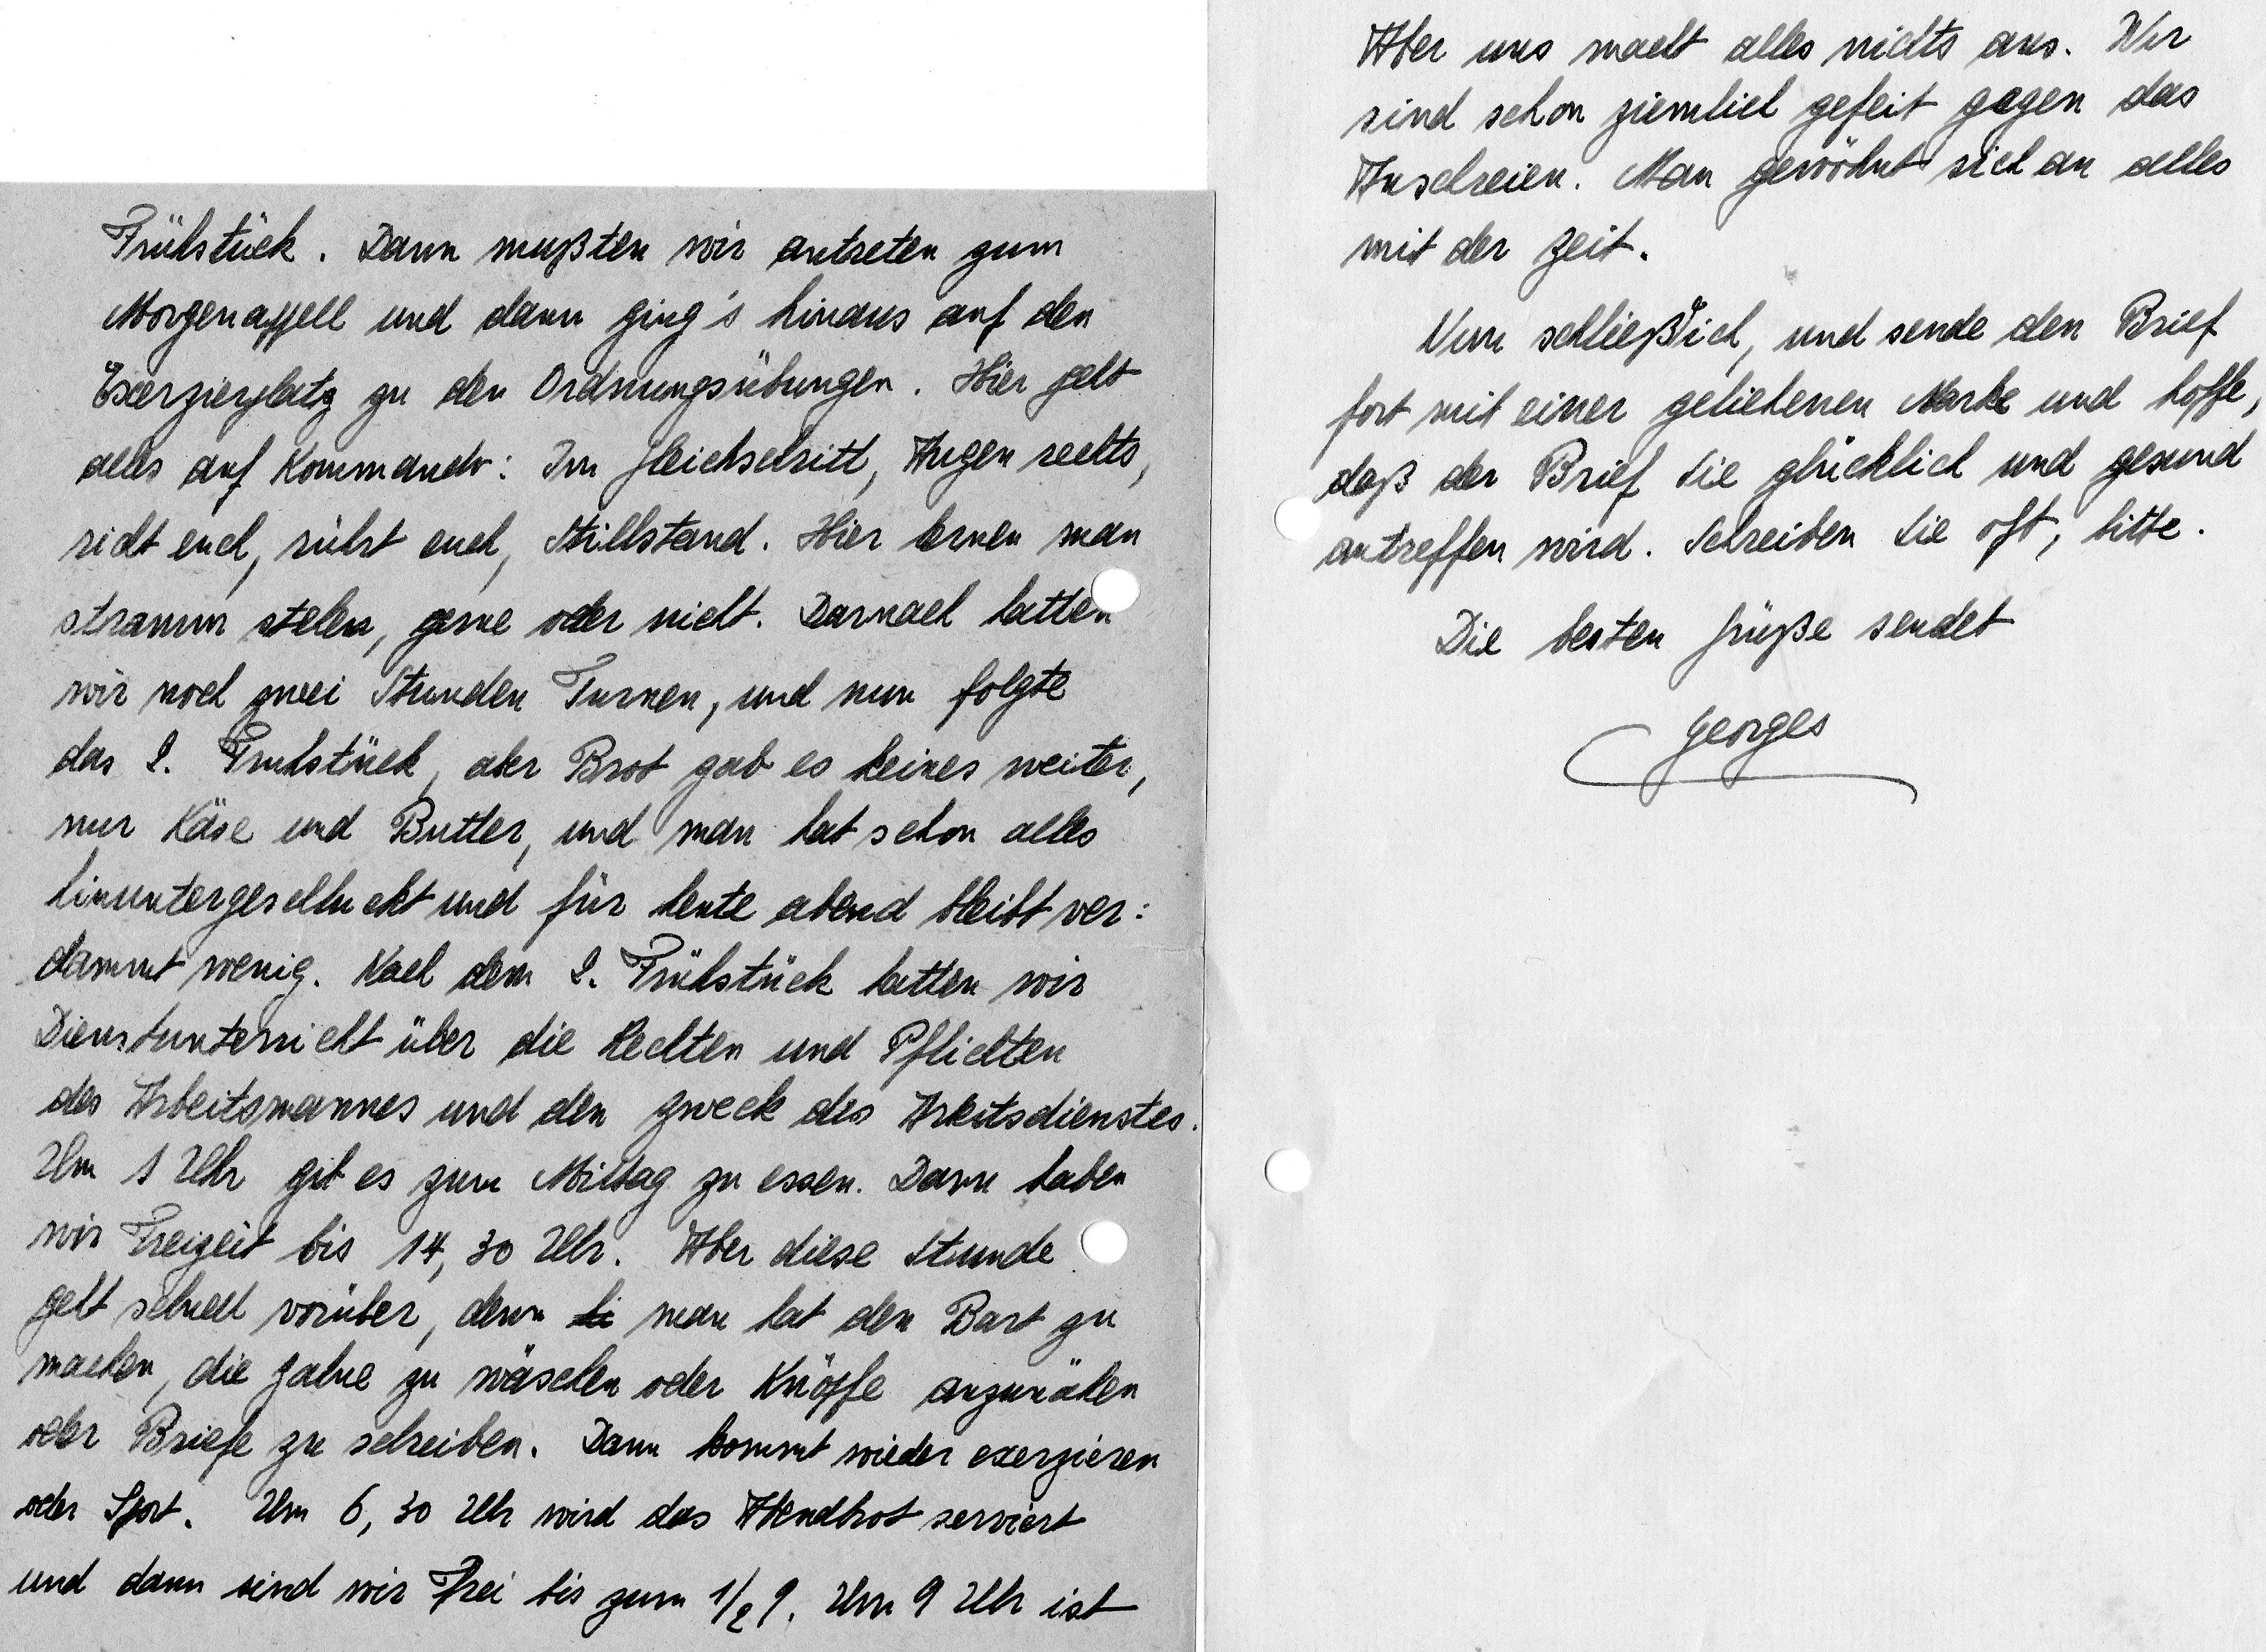 Frühstück. Dann mußten wir antreten zum
Morgenappell und dann ging's hinaus auf den
Exerzierplatz zu den Ordnungsübungen. Hier geht
alles auf Kommando: Im Gleichschritt, Augen rechts,
richt euch, rührt euch, Stillstand. Hier lernen man
stramm stehen, gerne oder nicht. Darnach hatten
wir noch zwei Stunden Turnen, und nun folgte
das 2. Fruhstück, aber Brot gab es keines weiter,
nur Käse und Butter, und man hat schon alles
hinuntergeschluckt und für heute abend bleibt ver:
dammt wenig. Nach dem 2. Frühstück hatten wir
Dienstunterricht über die Rechten und Pflichten
des Arbeitsmannes und den Zweck des Arbeitsdienstes.
Um 1 Uhr gibt es zum Mittag zu essen. Dann haben
wir Freizeit bis 14,30 Uhr. Aber diese Stunde
geht schnell vorüber, denn man hat den Bart zu
machen, die Zahne zu wäschen oder Knöpfe anzunähen
oder Briefe zu schreiben. Dann kommt wieder exerzieren
oder Sport. Um 6,30 Uhr wird das Abendbrot serviert
und dann sind wir Frei bis zum 1/2 9. Um 9 Uhr ist
Aber uns macht alles nichts aus. Wir
sind schon ziemlich gefeit gegen das
Anschreien. Man gewöhnt sich an alles
mit der Zeit.
Nun schließe ich, und sende den Brief
fort mit einer geliehenen Marke und hoffe,
daß der Brief Sie glücklich und gesund
antreffen wird. Schreiben Sie oft, bitte.
Die besten Grüße sendet
Georges